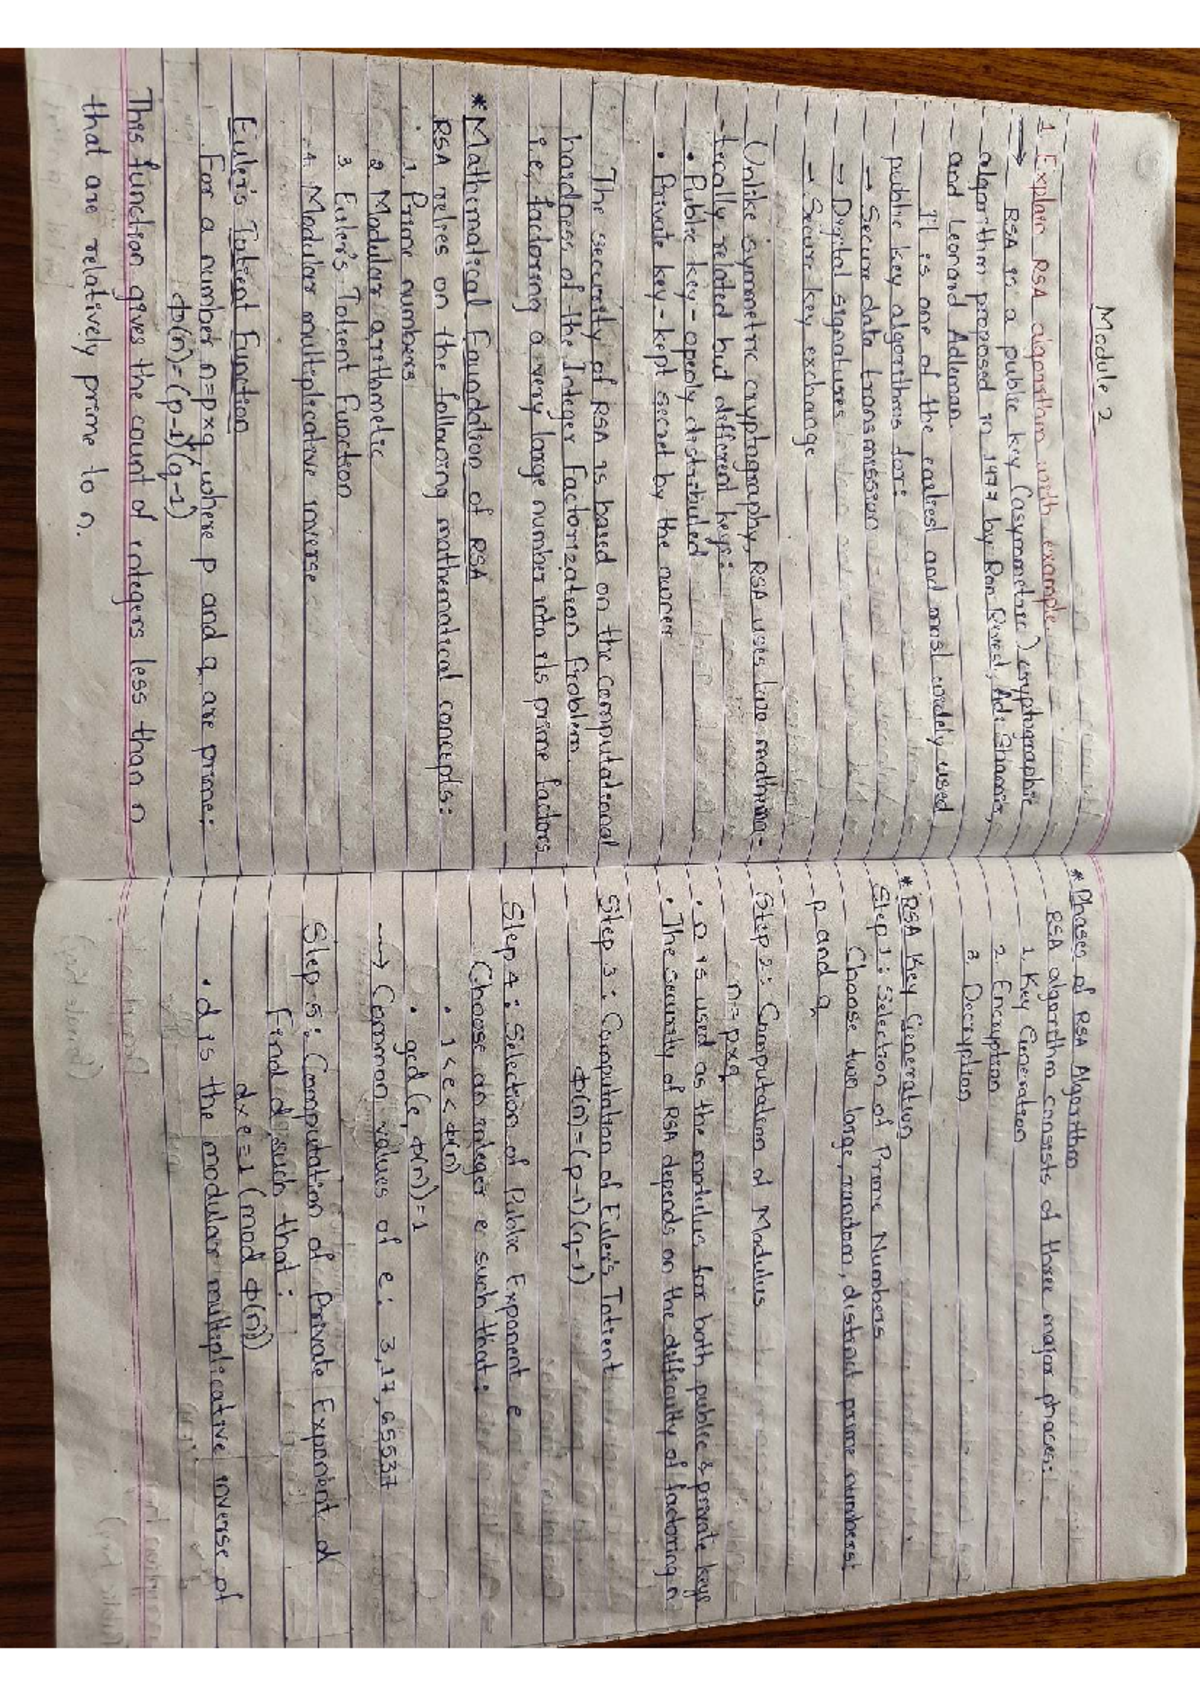 Module 2
1. Explain RSA algorithm with example.
→ RSA is a public key (asymmetric) cryptographic
algorithm proposed in 1977 by Ron Rivest, Adi Shamir,
and Leonard Adleman.
It is one of the earliest and most widely used
public key algorithms for:
→ Secure data transmission
→ Digital signatures
→ Secure key exchange
Unlike symmetric cryptography, RSA uses two mathema-
-tically related but different keys:
• Public key - openly distributed
• Private key - kept secret by the owner
The security of RSA is based on the computational
hardness of the Integer Factorization Problem
i.e, factoring a very large number into its prime factors
* Mathematical Foundation of RSA
RSA relies on the following mathematical concepts:
1. Prime numbers
2. Modular arithmetic
3. Euler's Totient Function
4. Modular multiplicative inverse
Euler's Totient Function
For a number n=p×q, where p and q are prime:
Φ(n)=(p-1)(q-1)
This function gives the count of integers less than n
that are relatively prime to n.
* Phases of RSA Algorithm
RSA algorithm consists of three major phases:
1. Key Generation
2. Encryption
3. Decryption
* RSA Key Generation
Step 1: Selection of Prime Numbers
Choose two large, random, distinct prime numbers:
p and q
Step 2: Computation of Modulus
n=p×q
• n is used as the modulus for both public & private keys
• The security of RSA depends on the difficulty of factoring n
Step 3: Computation of Euler's Totient
Φ(n)=(p-1)(q-1)
Step 4: Selection of Public Exponent e
Choose an integer e such that:
• 1<e<Φ(n)
• gcd(e,Φ(n))=1
→ Common values of e: 3,17,65537
Step 5: Computation of Private Exponent d
Find d, such that:
d×e≡1 (mod Φ(n))
• d is the modular multiplicative inverse of